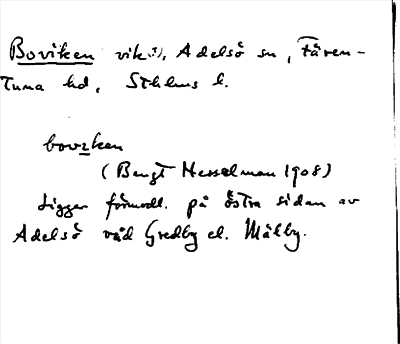 Boviken vik, Adelsö sn, Fären-
tuna hd, Sthlms l.
bovi̱ken
(Bengt Hesselman 1908)
Ligger förmodl. på östra sidan av
Adelsö vid Gredby el. Mälby.